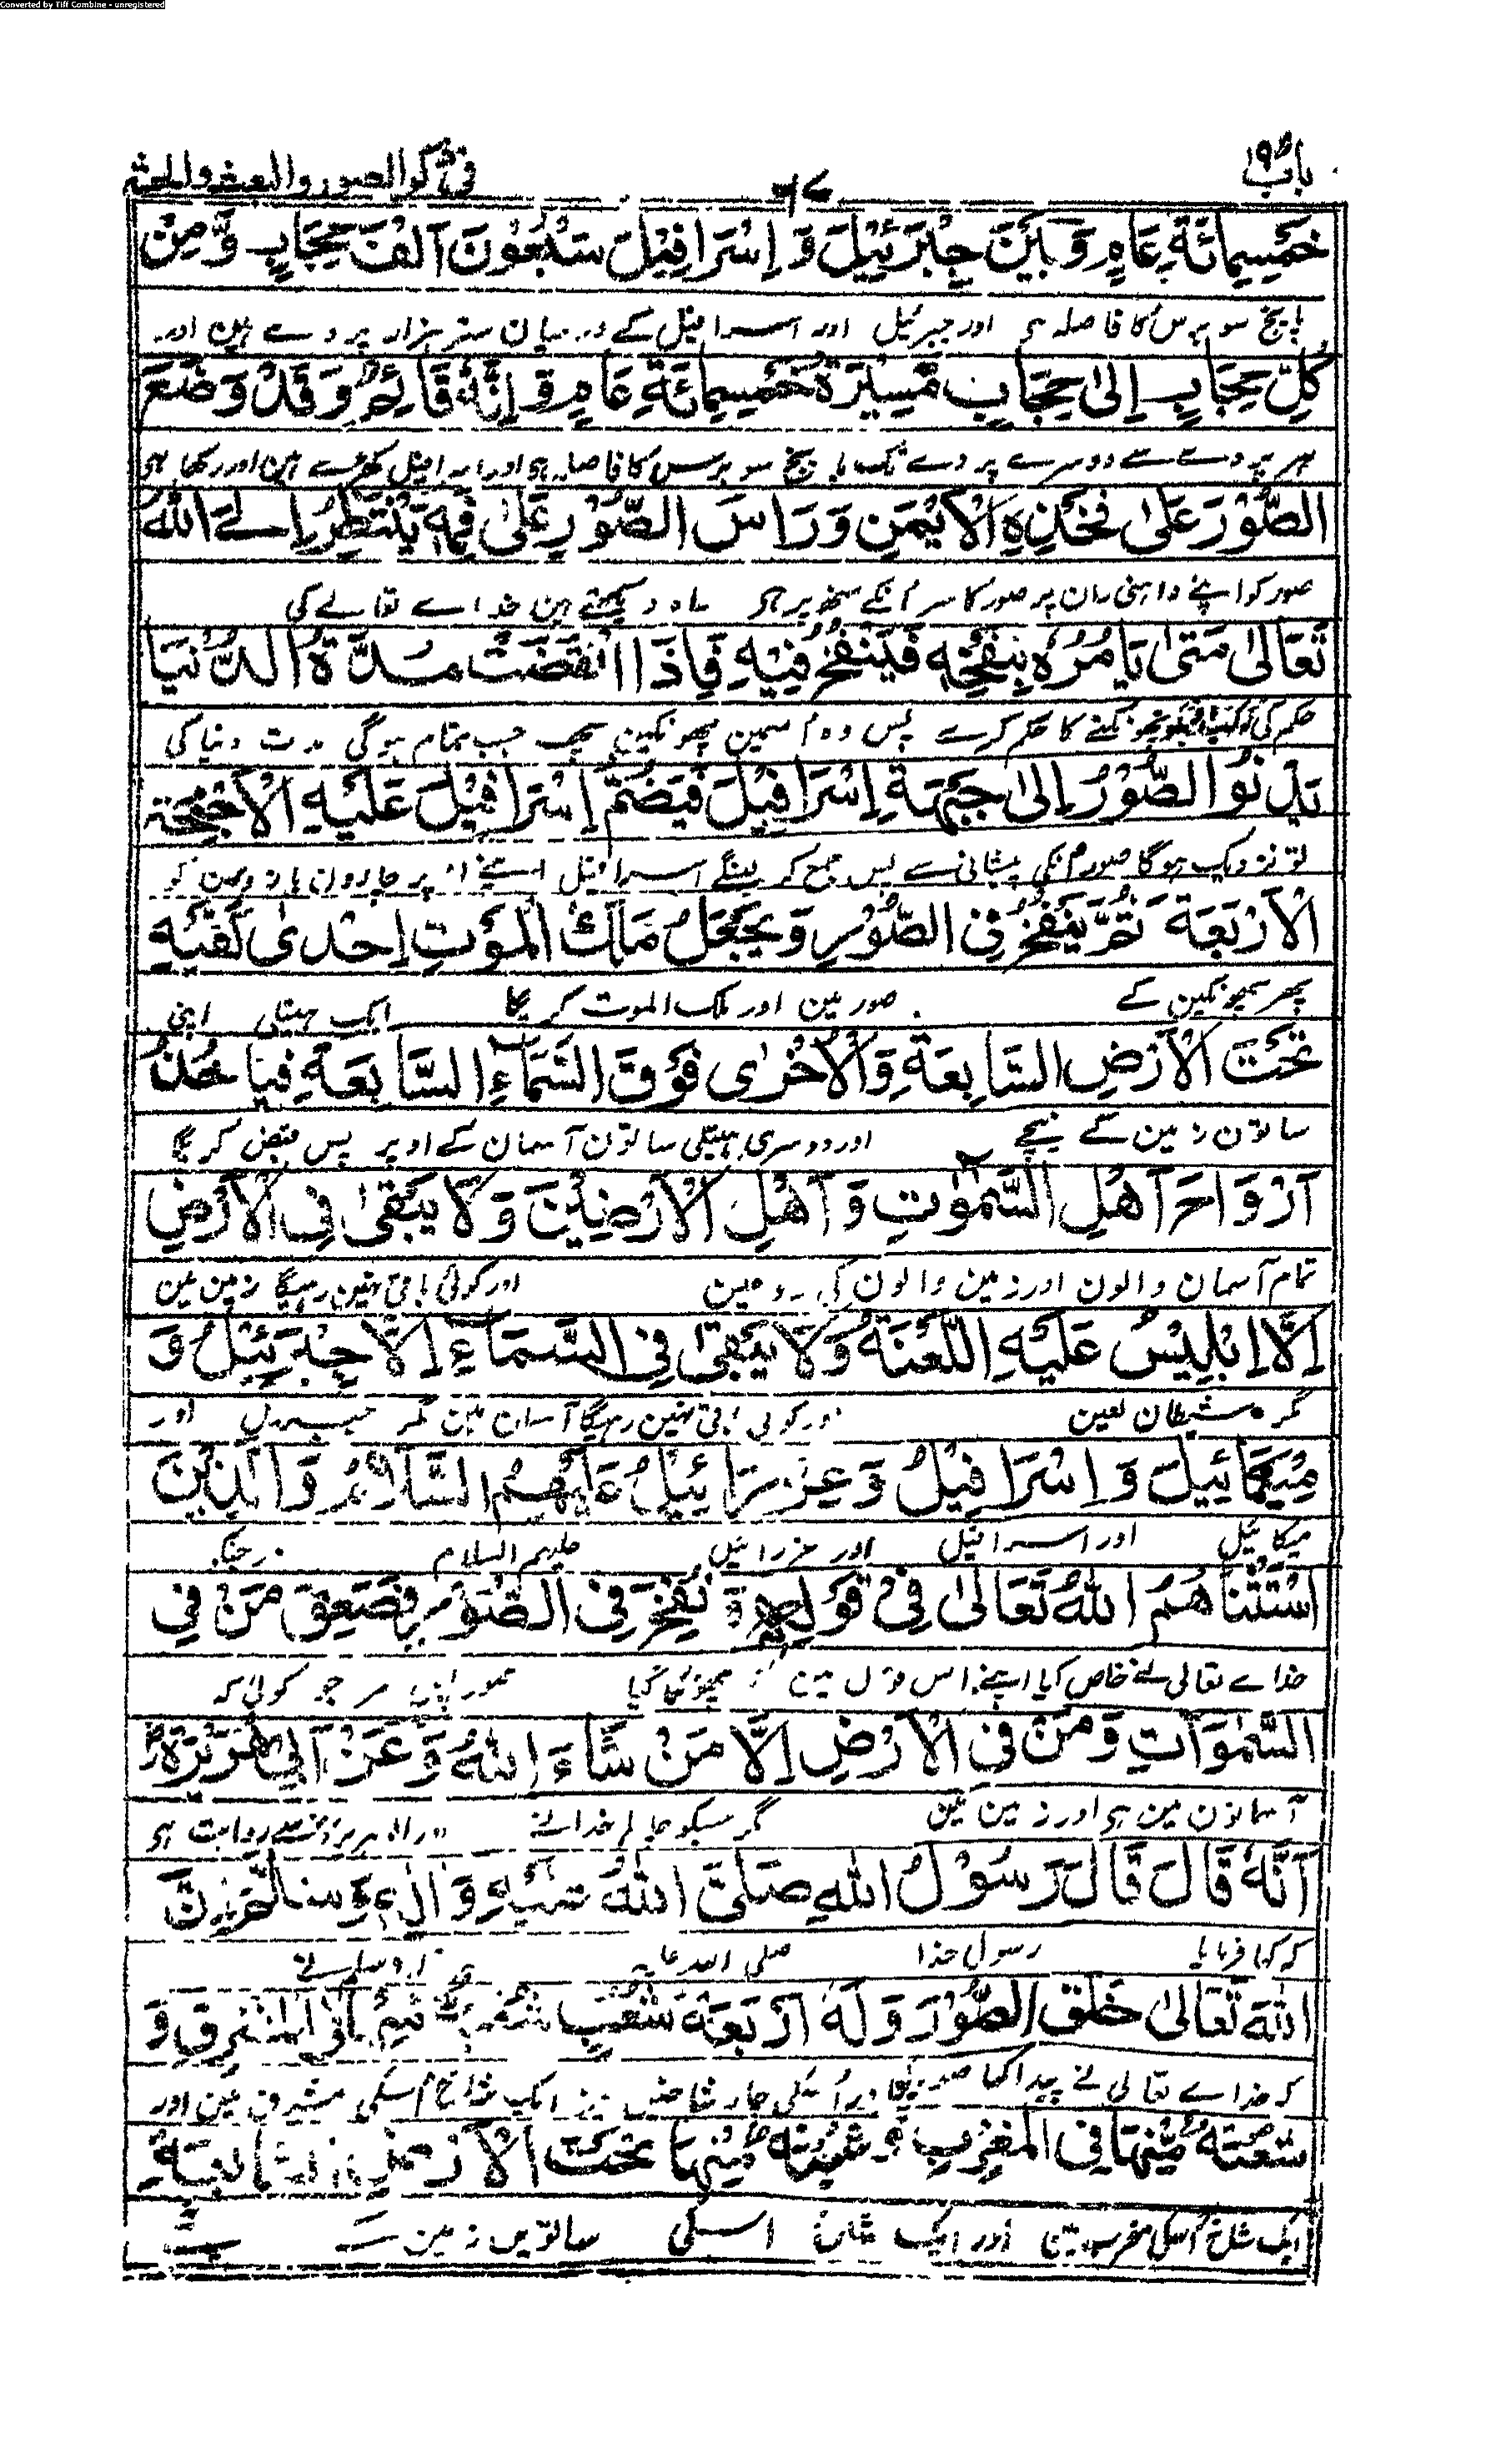 Converted by Tiff Combine - unregistered
باب ١٩
٦٧
فی ذکر الصور والبعث والحشر
خَمْسِمِائَةِ عَامٍ وَبَيْنَ جِبْرَئِيْلَ وَ اِسْرَافِيْلَ سَبْعُوْنَ اَلْفَ حِجَابٍ وَّمِنْ
پانچ سو برس کا فاصلہ ہی اور جبرئیل اور اسرافیل کے درمیان ستر ہزار پردے ہین اور
كُلِّ حِجَابٍ اِلٰى حِجَابٍ مَّسِيْرَةُ خَمْسِمِائَةِ عَامٍ وَ اِنَّهٗ قَائِمٌ وَقَدْ وَضَعَ
ہر پردے سے دوسرے پردے تک پانچ سو برس کا فاصلہ ہی اور اسرافیل کھڑے ہین اور رکھا ہی
الصُّوْرَ عَلٰى فَخْذِهِ الْاَيْمَنِ وَرَاسَ الصُّوْرِ عَلٰى فِمِهٖ يَنْتَظِرُ اِلَى اللّٰهِ
صور کو اپنے داہنی ران پر صور کا سر انکے منھ پر ہی راہ دیکھتے ہین خداے تعالے کی
تَعَالٰى مَتٰى يَامُرُهٗ بِنَفْخِهٖ فَيَنْفُخُ فِيْهِ فَاِذَا انْقَضَتْ مُدَّةُ الدُّنْيَا
حکم کی پھونکنے کا حکم کرے پس وہ اسمین پھونکین پھر جب تمام ہوگی مدت دنیا کی
يَدْنُو الصُّوْرُ اِلٰى جَبْهَةِ اِسْرَافِيْلَ فَيَضُمُّ اِسْرَافِيْلُ عَلَيْهِ الْاَجْنِحَةَ
تو نزدیک ہوگا صور انکی پیشانی سے پس جمع کر لینگے اسرافیل اپنے پر چارون بازوون کو
الْاَرْبَعَةَ ثُمَّ يَنْفُخُ فِى الصُّوْرِ وَيَجْعَلُ مَلَكُ الْمَوْتِ اِحْدٰى كَفَّيْهِ
پھر پھونکین گے صور مین اور ملک الموت کریگا ایک ہتیلی اپنی
تَحْتَ الْاَرْضِ السَّابِعَةِ وَالْاُخْرٰى فَوْقَ السَّمَاءِ السَّابِعَةِ فَيَاخُذُ
ساتون زمین کے نیچے اور دوسری ہتیلی ساتون آسمان کے اوپر پس قبض کریگا
اَرْوَاحَ اَهْلِ السَّمٰوٰتِ وَ اَهْلِ الْاَرْضِيْنَ وَلَا يَبْقٰى فِى الْاَرْضِ
تمام آسمان والون اور زمین والون کی روحین اور کوئی باقی نہین رہیگا زمین مین
اِلَّا اِبْلِيْسُ عَلَيْهِ اللَّعْنَةُ وَلَا يَبْقٰى فِى السَّمَاءِ اِلَّا جِبْرَئِيْلُ وَ
مگر شیطان لعین اور کوئی باقی نہین رہیگا آسمان مین مگر جبرئیل اور
مِيْكَائِيْلَ وَ اِسْرَافِيْلُ وَ عِزْرَائِيْلُ عَلَيْهِمُ السَّلَامُ وَ الَّذِيْنَ
میکائیل اور اسرافیل اور عزرائیل علیہم السلام
اسْتَثْنَاهُمُ اللّٰهُ تَعَالٰى فِىْ قَوْلِهٖ وَ نُفِخَ فِى الصُّوْرِ فَصَعِقَ مَنْ فِى
خداے تعالی نے خاص کیا اپنے اس قول مین پھونکا گیا صور پس مر جو کوئی کہ
السَّمٰوَاتِ وَمَنْ فِى الْاَرْضِ اِلَّا مَنْ شَاءَ اللّٰهُ وَعَنْ اَبِى هُرَيْرَةَ
آسمانون مین ہی اور زمین مین مگر جسکو چاہا خدا نے ابو ہریرہ سے روایت ہی
اَنَّهٗ قَالَ قَالَ رَسُوْلُ اللّٰهِ صَلَّى اللّٰهُ عَلَيْهِ وَ اٰلِهٖ وَسَلَّمَ اِنَّ
کہ کہا فرمایا رسول خدا صلی اللہ علیہ وسلم نے
اللّٰهَ تَعَالٰى خَلَقَ الصُّوْرَ وَلَهٗ اَرْبَعَةُ شُعَبٍ شُعْبَةٌ فِى الْمَشْرِقِ وَ
کہ خداے تعالی نے پیدا کیا صور اور اسکی چار شاخین ہین ایک شاخ اسکی مشرق مین اور
شُعْبَةٌ مِّنْهَا فِى الْمَغْرِبِ وَ شُعْبَةٌ مِّنْهَا تَحْتَ الْاَرْضِ السَّابِعَةِ
ایک شاخ اسکی مغرب مین اور ایک شاخ اسکی ساتوین زمین کے